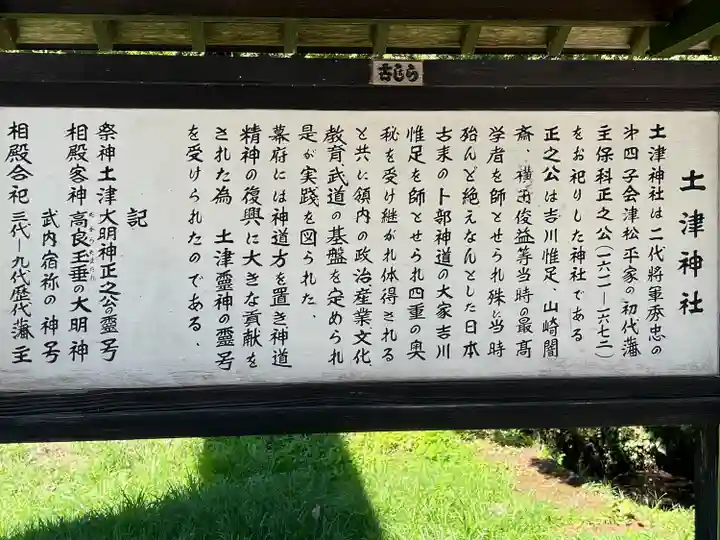 古しら
土津神社
土津神社は二代將軍秀忠の
㐧四子会津松平家の初代藩
主保科正之公(一六一一一六七二)
をお祀りした神社である
正之公は吉川惟足、山崎闇
斎、横田俊益等当時の最高
学者を師とせられ殊に当時
殆んど絶えなんとした日本
古来の卜部神道の大家吉川
惟足を師とせられ四重の奥
秘を受け継がれ体得される
と共に領内の政治産業文化
教育武道の基盤を定められ
是が実践を図られた、
幕府には神道方を置き神道
精神の復興に大きな貢献を
された為 土津靈神の靈号
を受けられたのである、
記
祭神土津大明神正之公の靈号
相殿客神 高良玉垂の大明神
武内宿祢の神号
相殿合祀 三代ー九代歴代藩主